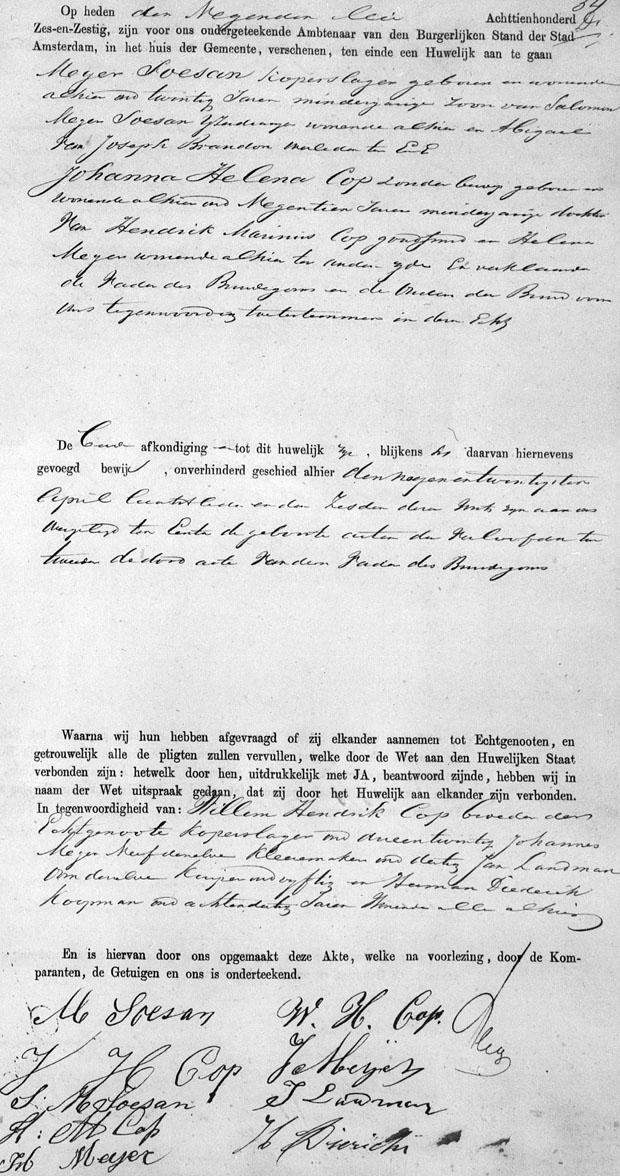 Op heden den Negenden Mei Achttienhonderd
Zes-en-Zestig, zijn voor ons ondergeteekende Ambtenaar van den Burgerlijken Stand der Stad
Amsterdam, in het huis der Gemeente, verschenen, ten einde een Huwelijk aan te gaan
Meyer Soesan Koperslager geboren en wonende
alhier oud twintig Jaren minderjarige zoon van Salomon
Meyer Soesan wonende alhier en Abigael
Van Joseph Brandon overleden ter Ee
Johanna Helena Cop zonder beroep geboren en
wonende alhier oud Negentien Jaren minderjarige dochter
Van Hendrik Marinus Cop goudsmid en Helena
Meyer wonende alhier ter andere zyde En verklaarden
de Vader des Bruidegoms en de Ouders der Bruid
ons tegenwoordig toetestemmen in deze Echt
De afkondiging tot dit huwelijk , blijkens daarvan hiernevens
gevoegd bewijs , onverhinderd geschied alhier den negenentwintigsten
April laatstleden en den Zesden dezer zyn aan ons
overgelegd ten Eerste de geboorte acten der Verloofden ten
tweede de dood acte Van den Vader des Bruidegoms
Waarna wij hun hebben afgevraagd of zij elkander aannemen tot Echtgenooten, en
getrouwelijk alle de pligten zullen vervullen, welke door de Wet aan den Huwelijken Staat
verbonden zijn: hetwelk door hen, uitdrukkelijk met JA, beantwoord zijnde, hebben wij in
naam der Wet uitspraak gedaan, dat zij door het Huwelijk aan elkander zijn verbonden.
In tegenwoordigheid van: Willem Hendrik Cop broeder der
Echtgenoote Koperslager oud drieentwintig Johannes
Meyer Neef derzelve Kleermaker oud dertig Jan Landman
Oom derzelve Kuiper oud vyftig en Herman Diederik
Koopman oud achtendertig Jaren Wonende alle alhier
En is hiervan door ons opgemaakt deze Akte, welke na voorlezing, door de Kom-
paranten, de Getuigen en ons is onderteekend.
M Soesan W. H. Cop.
J H Cop J Meÿer
S: M Soesan J Landman
H: M Cop H Dierichs
H Meyer